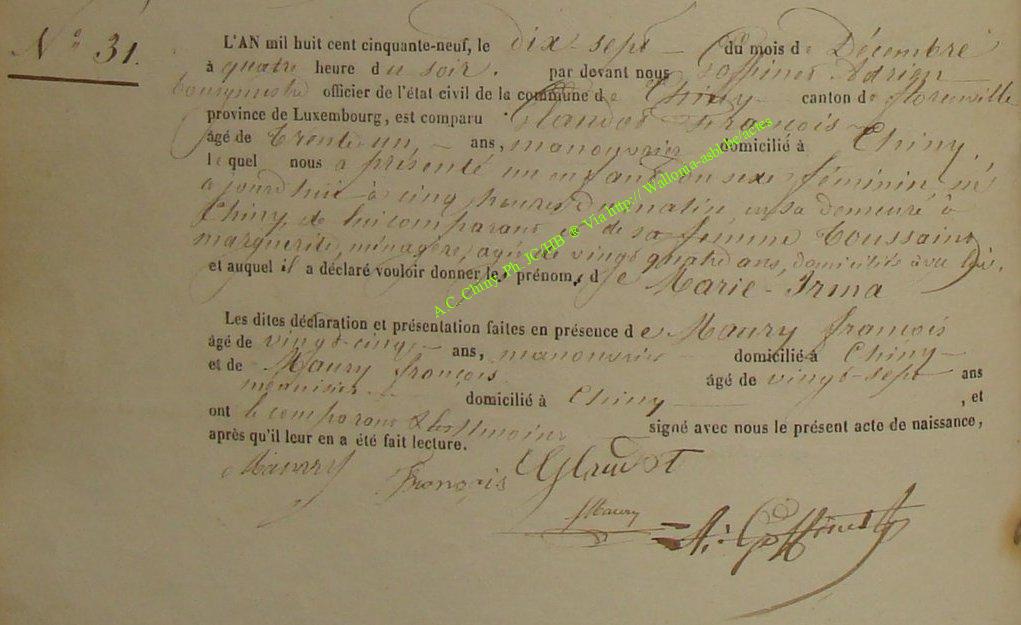 N° 31.
L'AN mil huit cent cinquante-neuf, le dix-sept du mois de Décembre
à quatre heure du soir. par devant nous Goffinet Adrien
bourgmestre officier de l'état civil de la commune de Chiny canton de florenville
province de Luxembourg, est comparu Glaudot François
âgé de trente-un ans, manouvrier domicilié à Chiny,
lequel nous a présenté un enfant du sexe féminin, né
aujourd'hui à cinq heures du matin, en sa demeure à
Chiny, de lui comparant et de sa femme toussaint
marguerite, ménagère, agée de vingt quatre ans, domiciliés avec lui,
et auquel il a déclaré vouloir donner les prénoms de Marie-Irma
Les dites déclaration et présentation faites en présence de Maury françois
âgé de vingt-cinq ans, manouvrier domicilié à Chiny
et de Maury françois âgé de vingt-sept ans
menuisier domicilié à Chiny , et
ont le comparant & les témoins signé avec nous le présent acte de naissance,
après qu'il leur en a été fait lecture.
Maurry François Glaudot
fMaury A. Goffinet
A.C. Chiny Ph. JC/HB & Via http:// Wallonia-asbl.be/actes